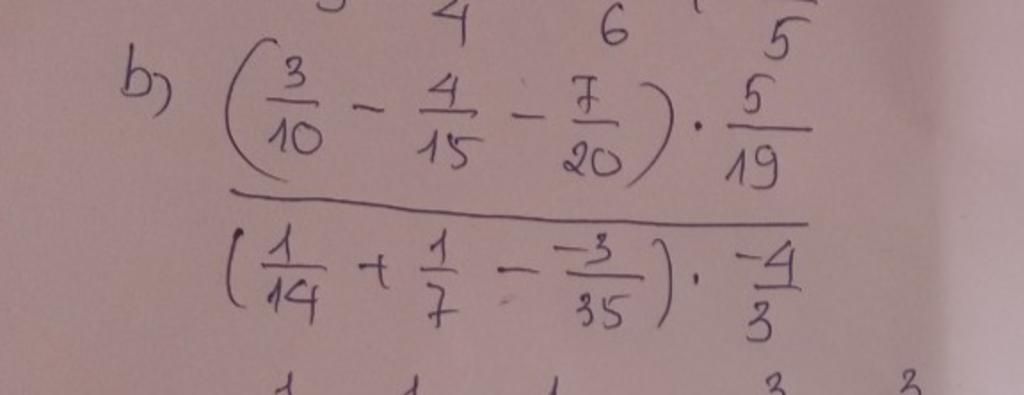 4 6 5
b) (3/10 - 4/15 - 7/20) · 5/19
(1/14 + 1/7 - -3/35) · -4/3